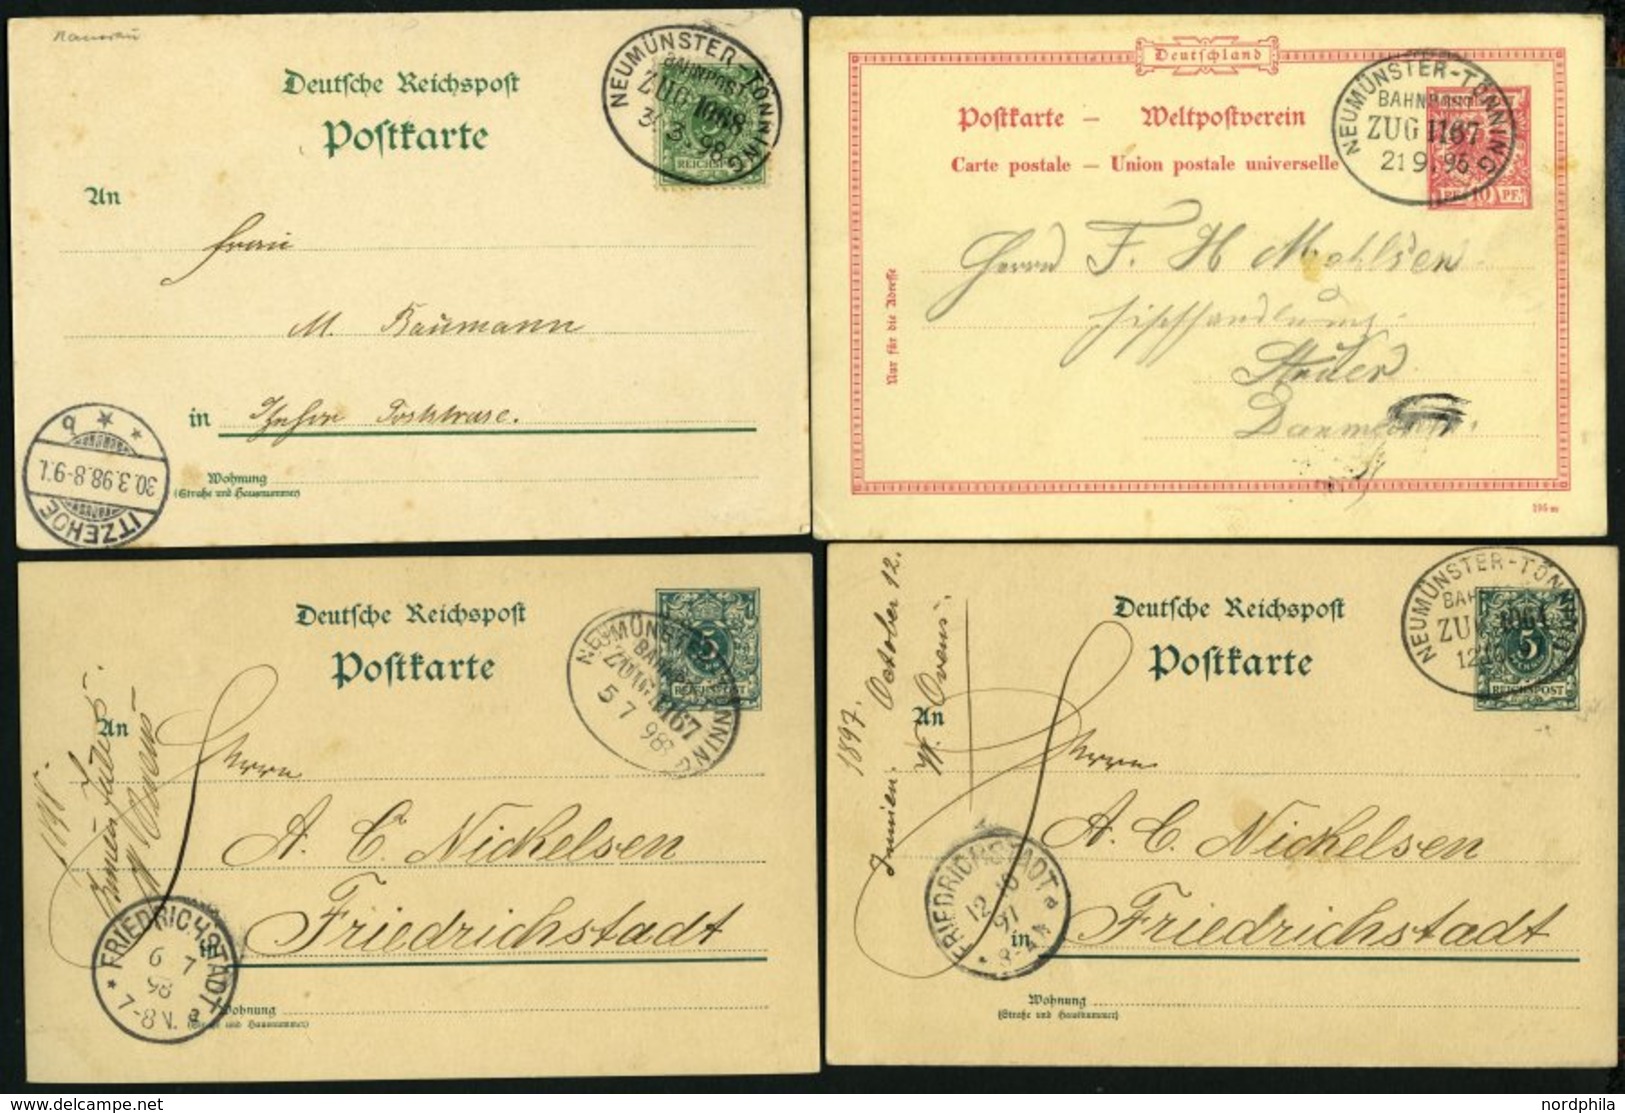 NEUMÜNSTER-TÖNNING
BAHNPOST
ZUG 1068
3. 3. 98
5
REICHSPOST
Deutsche Reichspost
Postkarte
An
Frau
M. Baumann
in
Wohnung
(Straße und Hausnummer)
ITZEHOE
30.3.98.8-9.V.
* * b
Deutschland
NEUMÜNSTER-TÖNNING
BAHNPOST
ZUG 1167
21 9. 96
10 PF.
Postkarte – Weltpostverein
Carte postale – Union postale universelle
Nur für die Adresse
Herrn F. H. Mohlsen
Fischhandlung
Struer
Danmark.
Deutsche Reichspost
Postkarte
NEUMÜNSTER-TÖNNING
BAHNPOST
ZUG 1167
5 7 98
5
REICHSPOST
An
1898
Herrn
A. C. Nickelsen
in Friedrichstadt
Wohnung
(Straße und Hausnummer)
* FRIEDRICHSTADT a
6 7
98
7-8 V.
Deutsche Reichspost
Postkarte
NEUMÜNSTER-TÖNNING
ZUG 1061
12 10
5
REICHSPOST
An
1897. October 12.
W. Ovens.
Herrn
A. C. Nickelsen
in Friedrichstadt
Wohnung
(Straße und Hausnummer)
* FRIEDRICHSTADT a
12 10
97
195m
nordphila
www.delcampe.net